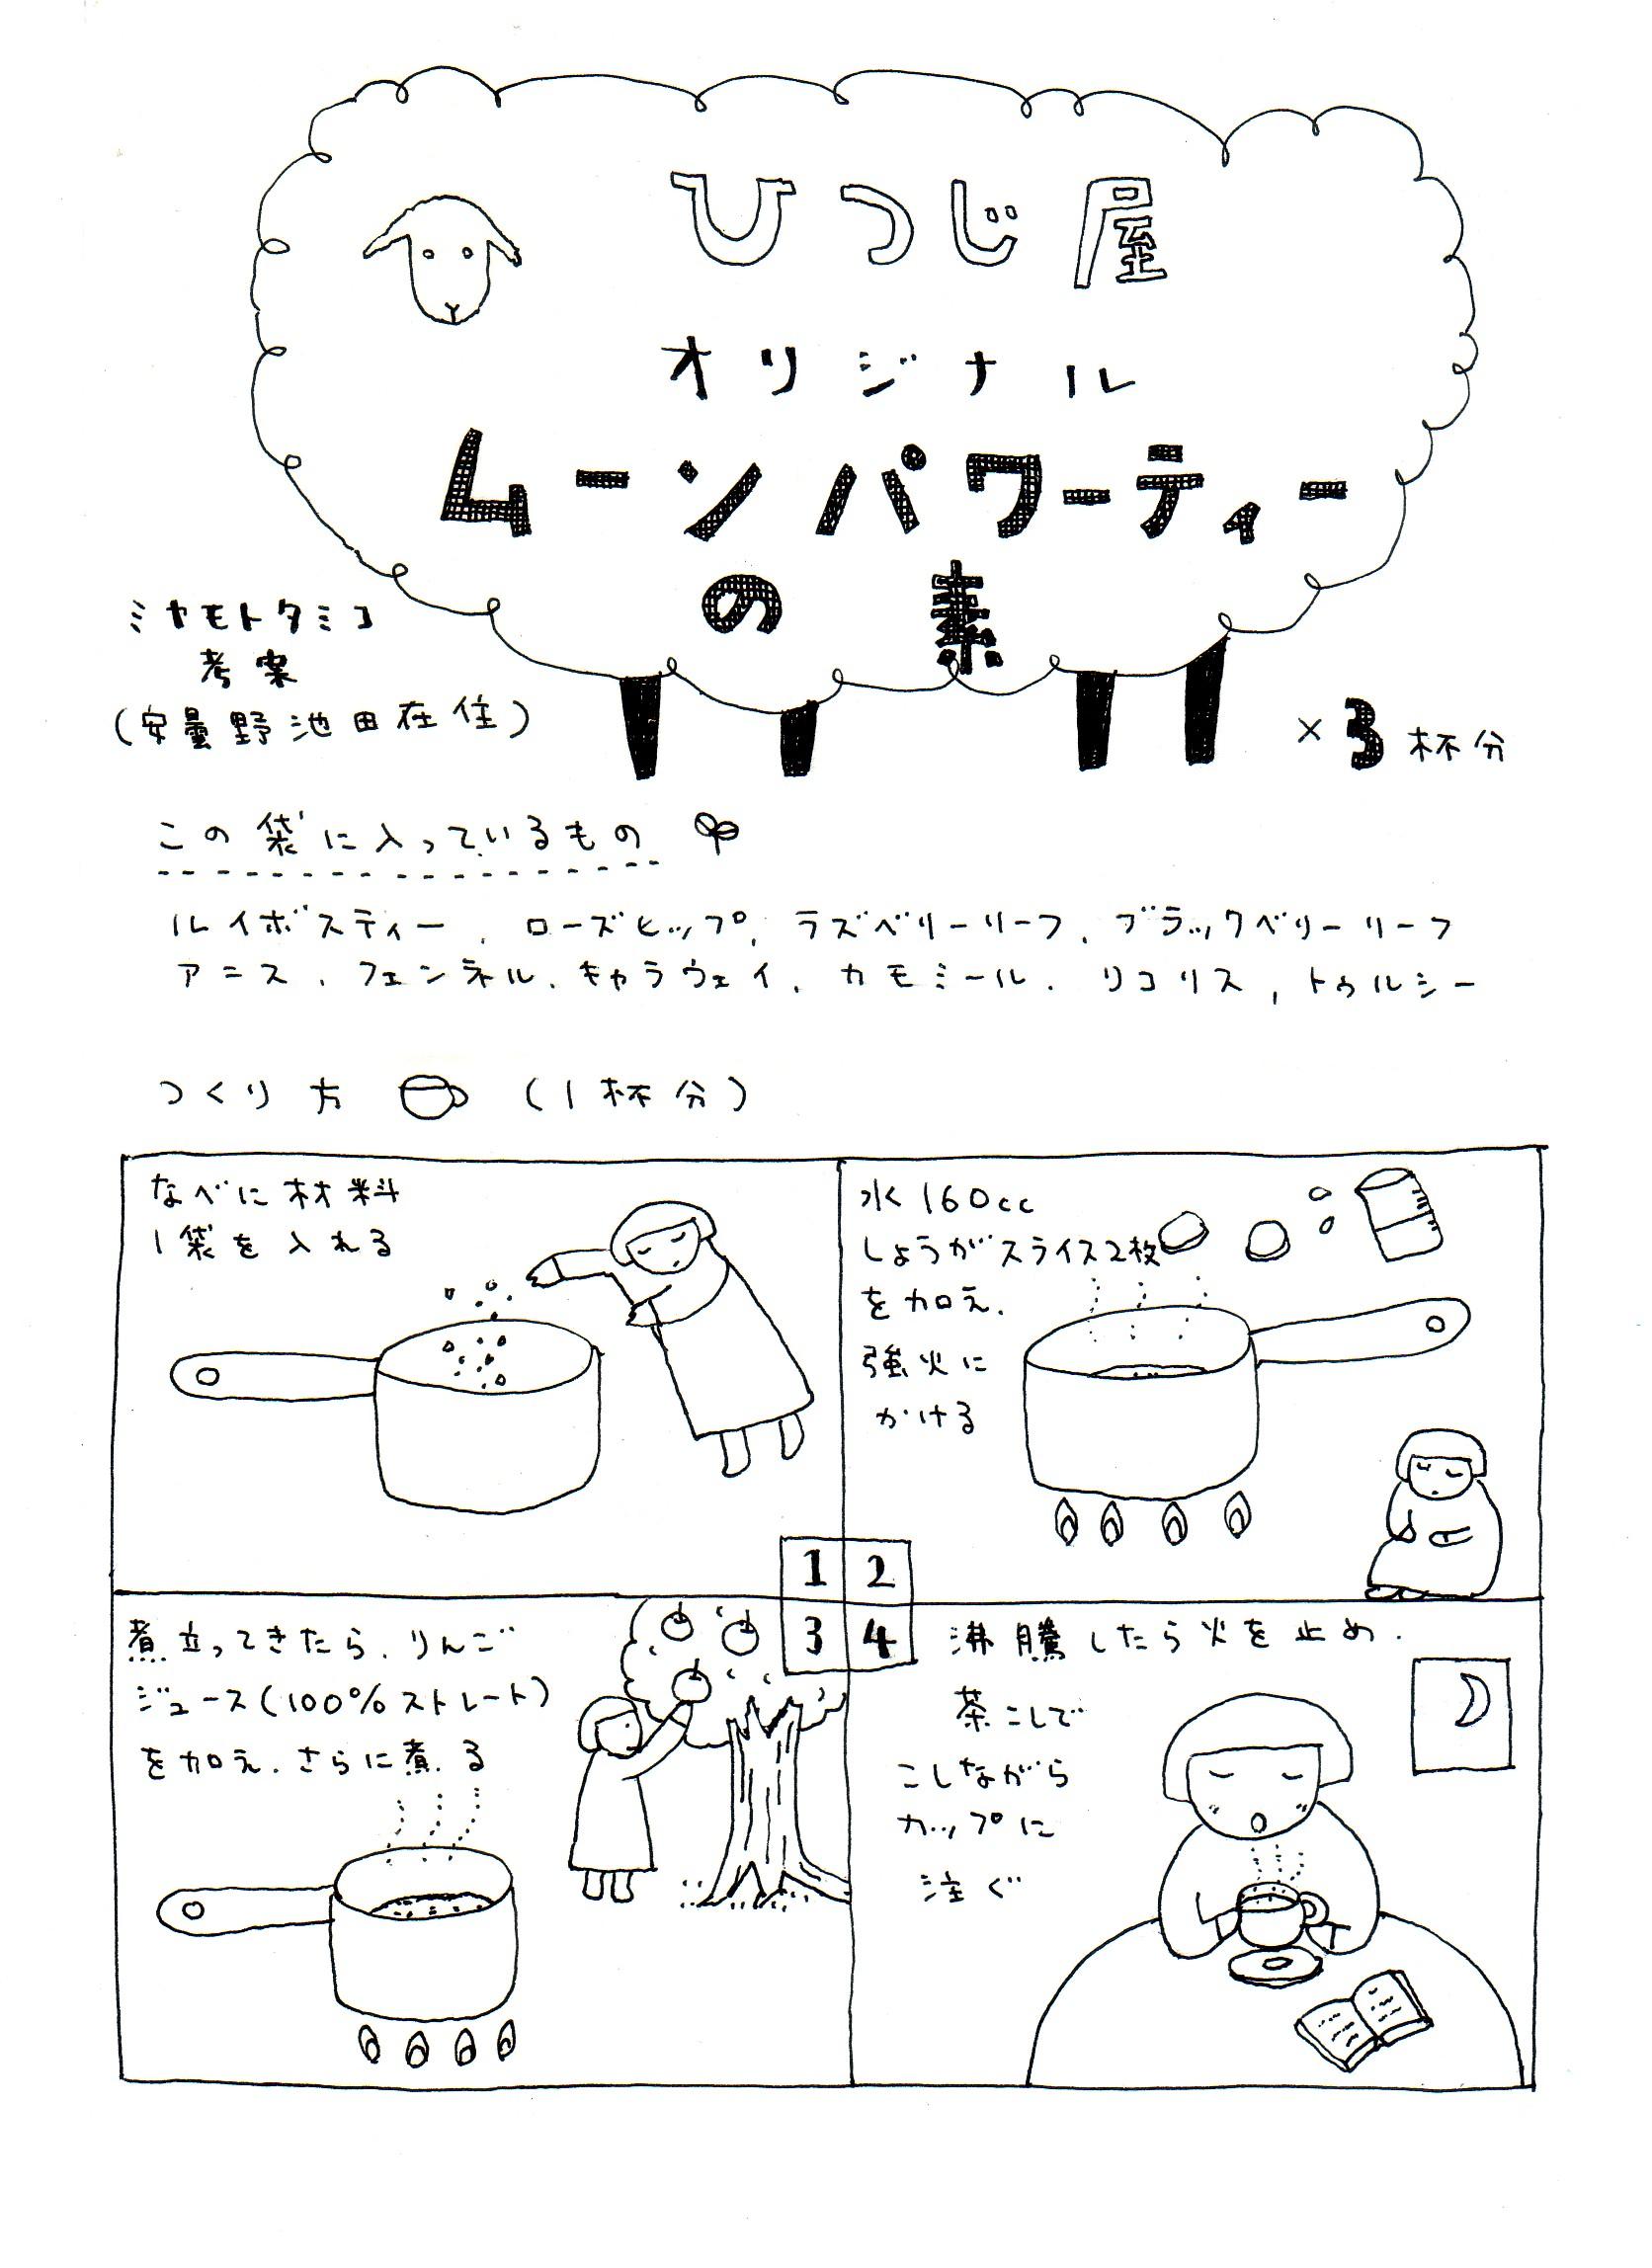 ひつじ屋
オリジナル
ムーンパワーティー
の素
ミヤモトタミコ
考案
(安曇野池田在住)
×3杯分
この袋に入っているもの
ルイボスティー、ローズヒップ、ラズベリーリーフ、ブラックベリーリーフ
アニス、フェンネル、キャラウェイ、カモミール、リコリス、トゥルシー
つくり方 (1杯分)
なべに材料
1袋を入れる
水160cc
しょうがスライス2枚
を加え、
強火に
かける
1 2
3 4
煮立ってきたら、りんご
ジュース(100%ストレート)
を加え、さらに煮る
沸騰したら火を止め、
茶こしで
こしながら
カップに
注ぐ